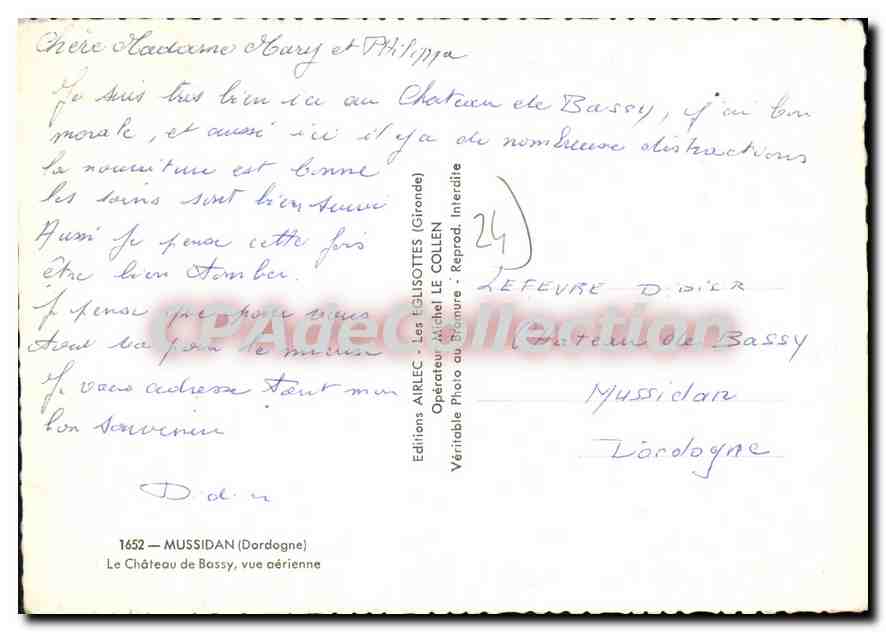 Chère Madame Mary et Philippa
Je suis tres bien ici au Chateau de Bassy, j'ai bon
morale, et aussi ici il y a de nombreuse distractions
la nourriture est bonne
les soins sont bien suivi
Aussi je pense cette fois
être bien tomber.
Je pense que pour vous
tout va pour le mieux
Je vous adresse tout mon
bon souvenir
Didier
1652 — MUSSIDAN (Dordogne)
Le Château de Bassy, vue aérienne
Editions AIRLEC - Les EGLISOTTES (Gironde)
Opérateur Michel LE COLLEN
Véritable Photo au Bromure - Reprod. Interdite
24)
LEFEVRE DIDIER
Chateau de Bassy
Mussidan
Dordogne
CPAdeCollection